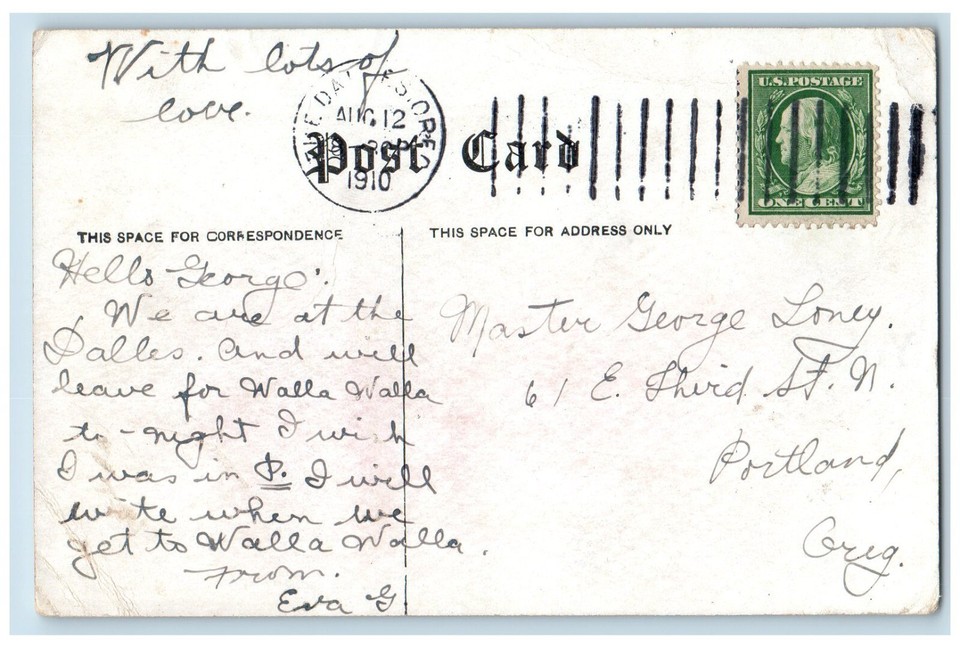 With lots of
love.
THE DALLES, OREG.
AUG 12
1910
Post Card
U.S. POSTAGE
ONE CENT
THIS SPACE FOR CORRESPONDENCE
THIS SPACE FOR ADDRESS ONLY
Hello George.
We are at the
Dalles. and will
leave for Walla Walla
to-night I wish
I was in P. I will
write when we
get to Walla Walla.
From.
Eva G
Master George Loney.
61 E. Third St. N.
Portland,
Oreg.